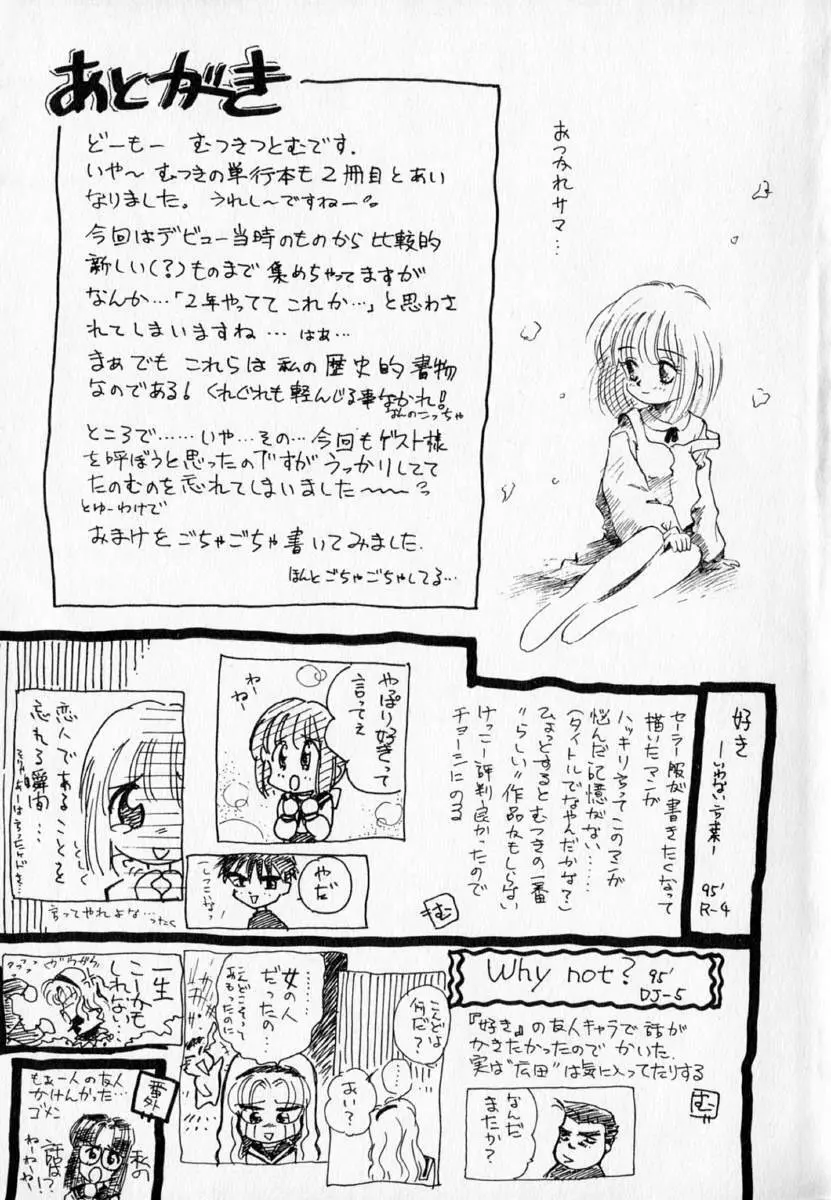 あとがき
どーもー むつきつとむです.
いや〜 むつきの単行本も2冊目とあい
なりました。うれしーですねー。
今回はデビュー当時のものから比較的
新しい(?)ものまで集めちゃってますが
なんか…「2年やっててこれか…」と思わさ
れてしまいますね… はぁ…
まぁでも これらは私の歴史的書物
なのである! くれぐれも軽んじる事なかれ!
なんのこっちゃ
ところで……いや…その…今回もゲスト様
を呼ぼうと思ったのですがうっかりしてて
たのむのを忘れてしまいました〜〜?
とゆーわけで
おまけをごちゃごちゃ書いてみました.
ほんとごちゃごちゃしてる…
おつかれサマ…
好き
ーいけない言葉ー
95'
R-4
セーラー服が書きたくなって
描いたマンガ
ハッキリ言ってこのマンガ
悩んだ記憶がない……
(タイトルでなやんだかな?)
ひょっとするとむつきの一番
"らしい"作品かもしらない
けっこー評判良かったので
チョーシにのる
む
やっぱり好きって
言ってェ
わー
ねー
やだ
しつこいなっ
恋人であることを
忘れる瞬間…
しくしく
言ってやれよな… ったく
Why not?
95'
DJ-5
『好き』の友人キャラで話が
かきたかったのでかいた.
実は"広田"は気に入ってたりする
む
なんだ
またか?
こんどは
何だ?
あい?
……女の人
だったの…
こんどこそって
おもったのに
一生
こーかも
しれない…
番外
もぉ一人の友人
かけんかった…
ゴメン
私の
話は!?
ねーねーや!